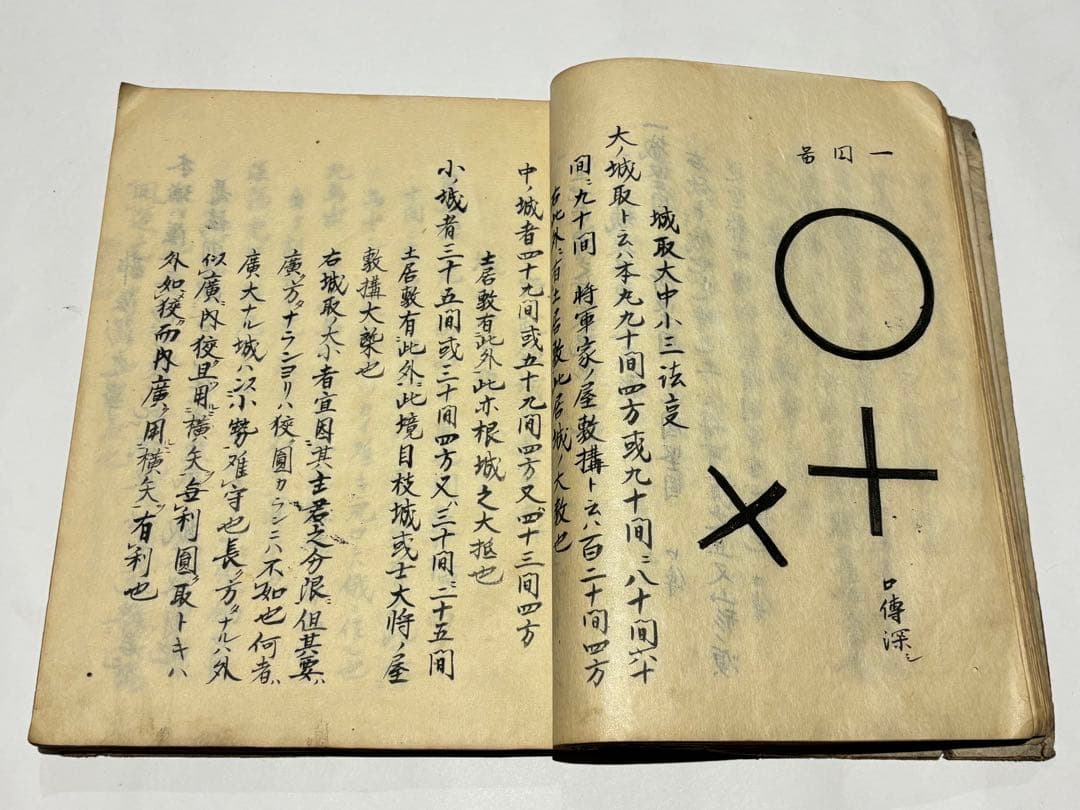 一円啚
口傳深シ
城取大中小三法㕝
大ノ城取ト云ハ本九九十間四方或九十間ニ八十間六十
間ニ九十間 将軍家ノ屋敷搆ト云ハ百二十間四方
右此外ニ有土居敷此居城ノ大敷也
中ノ城者四十九間或五十九間四方又ハ四十三間四方
土居敷有此外此亦根城之大抵也
小ノ城者三十五間或三十間四方又ハ三十間ニ二十五間
土居敷有此外ニ此境目枝城或士大将ノ屋
敷搆大槩也
右城取ノ大小者宜因其主君之分限ニ但其要ハ
廣ク方ナランヨリハ狡ク圓カランニハ不如也何者ハ
廣大ナル城ハ以小勢難守也長ク方ナルハ外
似廣ニ内狡且用横矢ヲ無利圓ク取トキハ
外如狡而内廣ク用ニ横矢ヲ有利也